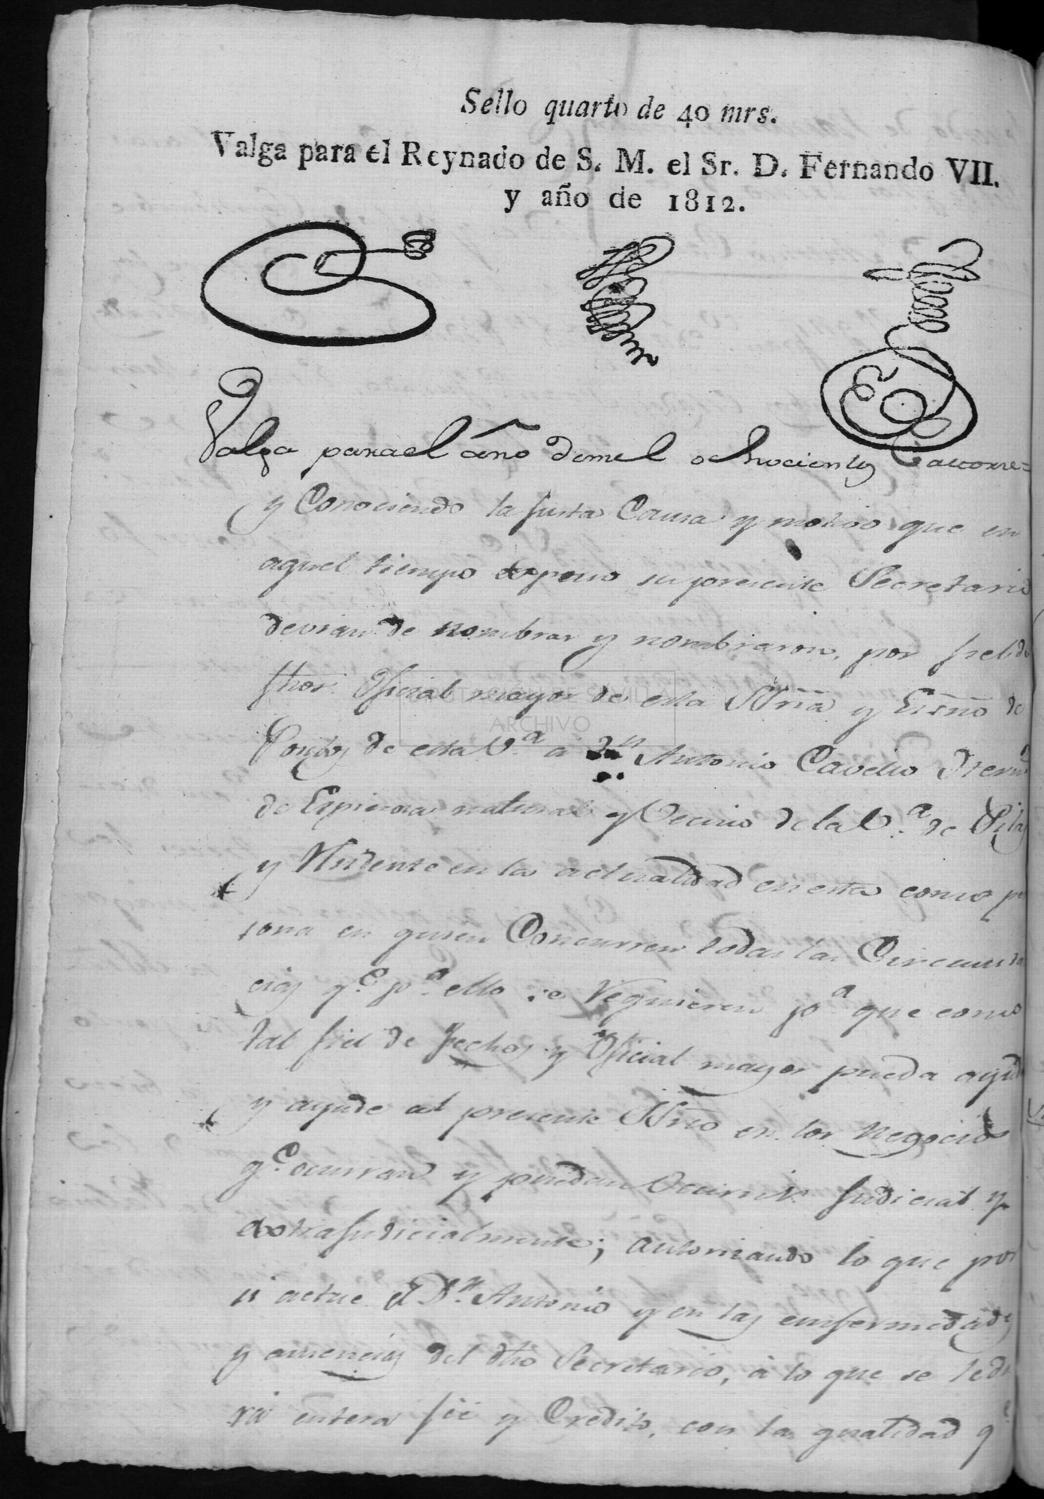 Sello quarto de 40 mrs.
Valga para el Reynado de S. M. el Sr. D. Fernando VII.
y año de 1812.
Valga para el año de mil ochocientos catorze=
y Conociendo la justa Causa y motivo que en
aquel tiempo expuso su presente Secretario
devian de nombrar y nombraron, por fiel de
fhos. Oficial mayor de esta SSrīa y Essno de
de esta V.a a Dn Antonio Cavelio
de Espinosa natural y Vecino de la V.a de
y Residente en la actualidad en esta como per
sona en quien Concurren todas las Circunstan
cias q.e p.a ello se requieren p.a que como
tal fiel de fechos y Oficial mayor pueda ayudar
y ayude al presente SSrio en los negocios
q.e ocurran y puedan Ocurrir Judicial y
extrajudicialmente; autorizando lo que por
si actue el Dn. Antonio y en las enfermedades
y ausencias del dho Secretario, á lo que se le da
rá entera feé y Credito, con la qualidad q.e
ARCHIVO